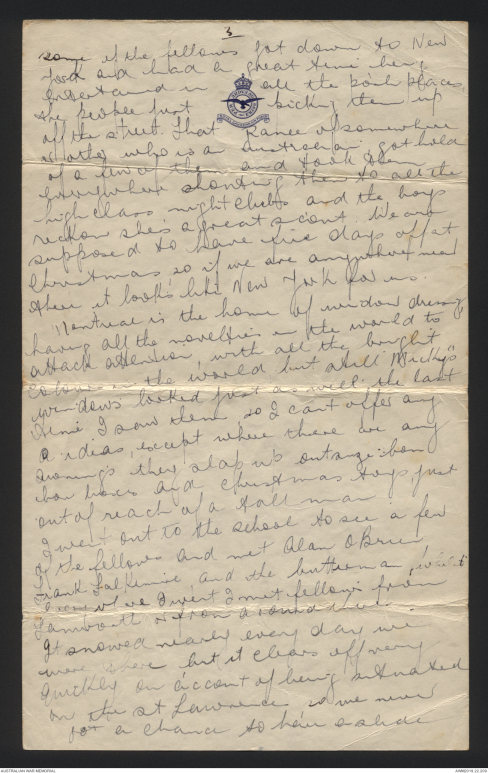 3
some of the fellows got down to New
York and had a great time being
entertained in all the posh places,
the people just picking them up
off the street. That Ranee of somewhere
or other who is a Australian got hold
of a few of them and took them
everywhere shouting them to all the
high class night clubs and the boys
reckon she's a great scout. We are
supposed to have five days off at
Christmas, so if we are anywhere near
there it looks like New York for us.
Montreal is the home of window dressing
having all the novelties in the world to
attract attention, with all the bright
colours in the world but still Micky's
windows looked just as well the last
time I saw them, so I cant offer any
ideas, except where there are any
awnings they slap up outsize bon
bon boxes and Christmas toys, just
out of reach of a tall man
I went out to the school to see a few
of the fellows and met Alan O'Brien
Frank Falkenmire, and the butterman,
where I went I met fellows from
Tamworth
It snowed nearly every day we
were there but it clears off very
quickly on account of being situated
on the St Lawrence so we never
got a chance to have a slide
AUSTRALIAN WAR MEMORIAL